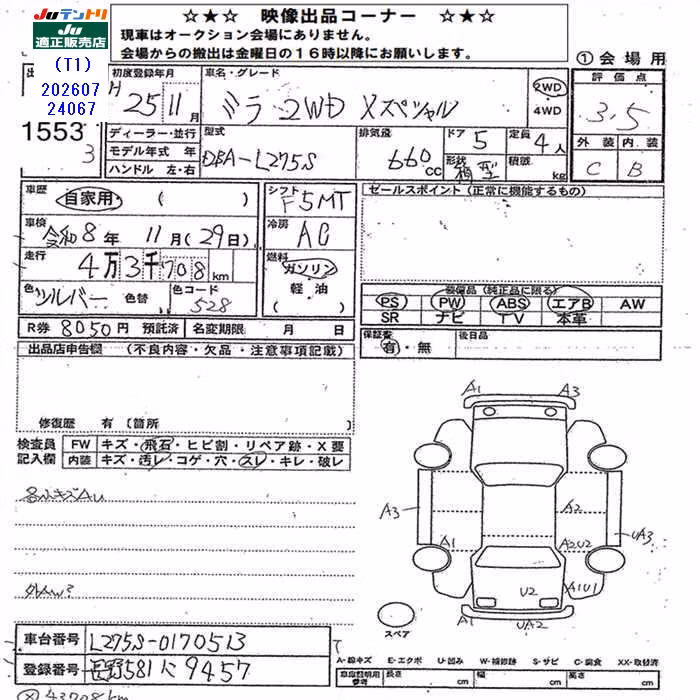 Juテントリ
Ju
適正販売店
(T1)
202607
24067
☆★☆ 映像出品コーナー ☆★☆
現車はオークション会場にありません。
会場からの搬出は金曜日の16時以降にお願いします。
①会場用
1553
3
初度登録年月
H 25 11月
車名・グレード
ミラ 2WD Xスペシャル
2WD
4WD
評価点
3.5
外装 内装
C B
ディーラー・並行
モデル年式 年
ハンドル 左・右
型式
DBA-L275S
排気量
660 cc
ドア
5
形状
箱型
定員
4人
積載
kg
車歴
自家用 ( )
車検
令和8年 11月(29日)
走行
4万3千708km
色
シルバー 色替
色コード
S28
シフト
F5MT
冷房
AC
燃料
ガソリン
軽・油
( )
セールスポイント(正常に機能するもの)
装備品(純正品に限る)
PS PW ABS エアB AW
SR ナビ TV 本革
R券 8050円 預託済 名変期限 月 日
保証書
有・無
後日品
出品店申告欄 (不良内容・欠品・注意事項記載)
修復歴 有 〔箇所 〕
検査員
記入欄
FW キズ・飛石・ヒビ割・リペア跡・X要
内装 キズ・汚レ・コゲ・穴・スレ・キレ・破レ
各小キズAU
A1 A3
A3
A2
UA3
A1
A2U2
U2
A1U1
UA2
スペア
車台番号 L275S-0170513
登録番号 長野581 に 9457
A-線キズ E-エクボ U-凹み W-補修跡 S-サビ C-腐食 XX-取替済
車庫証明用
参考
長さ cm 幅 cm 高さ cm
43708km